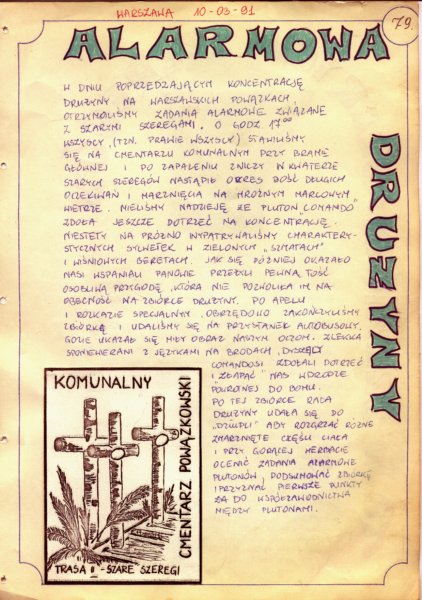 WARSZAWA 10-03-91
79.
ALARMOWA
DRUŻYNY
W DNIU POPRZEDZAJĄCYM KONCENTRACJĘ
DRUŻYNY NA WARSZAWSKICH POWĄZKACH,
OTRZYMALIŚMY ZADANIA ALARMOWE ZWIĄZANE
Z SZARYMI SZEREGAMI. O GODZ. 17⁰⁰
WSZYSCY, (TZN. PRAWIE WSZYSCY) STAWILIŚMY
SIĘ NA CMENTARZU KOMUNALNYM PRZY BRAMIE
GŁÓWNEJ I PO ZAPALENIU ZNICZY W KWATERZE
SZARYCH SZEREGÓW NASTĄPIŁ OKRES DOŚĆ DŁUGICH
OCZEKIWAŃ I MARZNIĘCIA NA MROŹNYM MARCOWYM
WIETRZE. MIELIŚMY NADZIEJĘ ŻE PLUTON „COMANDO"
ZDOŁA JESZCZE DOTRZEĆ NA KONCENTRACJĘ.
NIESTETY NA PRÓŻNO WYPATRYWALIŚMY CHARAKTERY-
STYCZNYCH SYLWETEK W ZIELONYCH „SZMATACH"
I WIŚNIOWYCH BERETACH. JAK SIĘ PÓŹNIEJ OKAZAŁO
NASI WSPANIALI PANOWIE PRZEŻYLI PEWNĄ DOŚĆ
OSOBLIWĄ PRZYGODĘ, KTÓRA NIE POZWOLIŁA IM NA
OBECNOŚĆ NA ZBIÓRCE DRUŻYNY. PO APELU
I ROZKAZIE SPECJALNYM, OBRZĘDOWO ZAKOŃCZYLIŚMY
ZBIÓRKĘ I UDALIŚMY SIĘ NA PRZYSTANEK AUTOBUSOWY,
GDZIE UKAZAŁ SIĘ MIŁY OBRAZ NASZYM OCZOM. ZLEKKA
SPONIEWIERANI Z JĘZYKAMI NA BRODACH, DYSZĄCY
COMANDOSI ZDOŁALI DOTRZEĆ
I „ZŁAPAĆ" NAS W DRODZE
POWROTNEJ DO DOMU.
PO TEJ ZBIÓRCE RADA
DRUŻYNY UDAŁA SIĘ DO
„DZIUPLI" ABY ROZGRZAĆ RÓŻNE
ZMARZNIĘTE CZĘŚCI CIAŁA
I PRZY GORĄCEJ HERBACIE
OCENIĆ ZADANIA ALARMOWE
PLUTONÓW, PODSUMOWAĆ ZBIÓRKĘ
I PRZYZNAĆ PIERWSZE PUNKTY
DO WSPÓŁZAWODNICTWA
MIĘDZY PLUTONAMI.
KOMUNALNY
CMENTARZ POWĄZKOWSKI
TRASA I - SZARE SZEREGI